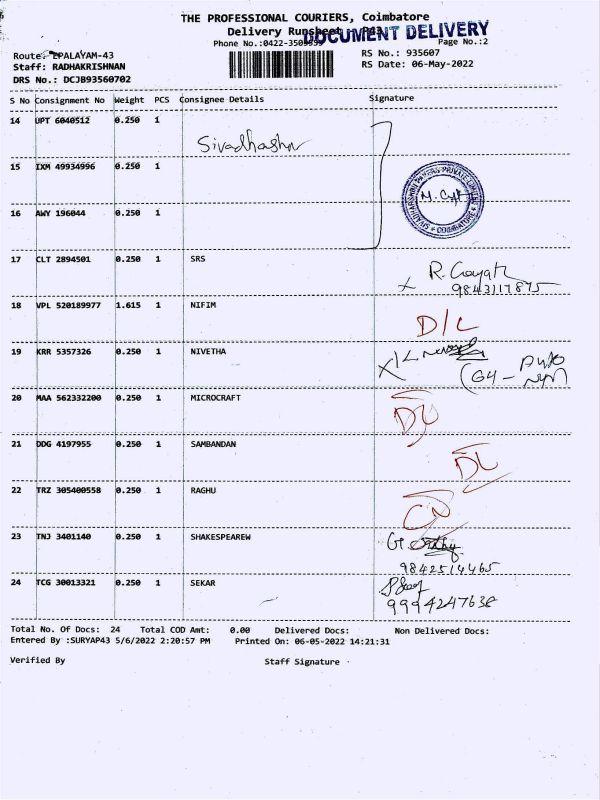 THE PROFESSIONAL COURIERS, Coimbatore
Delivery Runsheet - P43
DOCUMENT DELIVERY
Phone No.:0422-
Page No.:2
Route: EPALAYAM-43
RS No.: 935607
Staff: RADHAKRISHNAN
RS Date: 06-May-2022
DRS No.: DCJB93560702
S No Consignment No Weight PCS Consignee Details Signature
14 UPT 6040512 0.250 1
Sivadhashn
15 IXM 49934996 0.250 1
16 AWY 196044 0.250 1
COIMBATORE
17 CLT 2894501 0.250 1 SRS
R. Gayath
9843117875
18 VPL 520189977 1.615 1 NIFIM
D/L
19 KRR 5357326 0.250 1 NIVETHA
20 MAA 562332200 0.250 1 MICROCRAFT
DL
21 DDG 4197955 0.250 1 SAMBANDAN
DL
22 TRZ 305400558 0.250 1 RAGHU
23 TNJ 3401140 0.250 1 SHAKESPEAREW
9842514465
24 TCG 30013321 0.250 1 SEKAR
9994247638
Total No. Of Docs: 24 Total COD Amt: 0.00 Delivered Docs: Non Delivered Docs:
Entered By :SURYAP43 5/6/2022 2:20:57 PM Printed On: 06-05-2022 14:21:31
Verified By Staff Signature